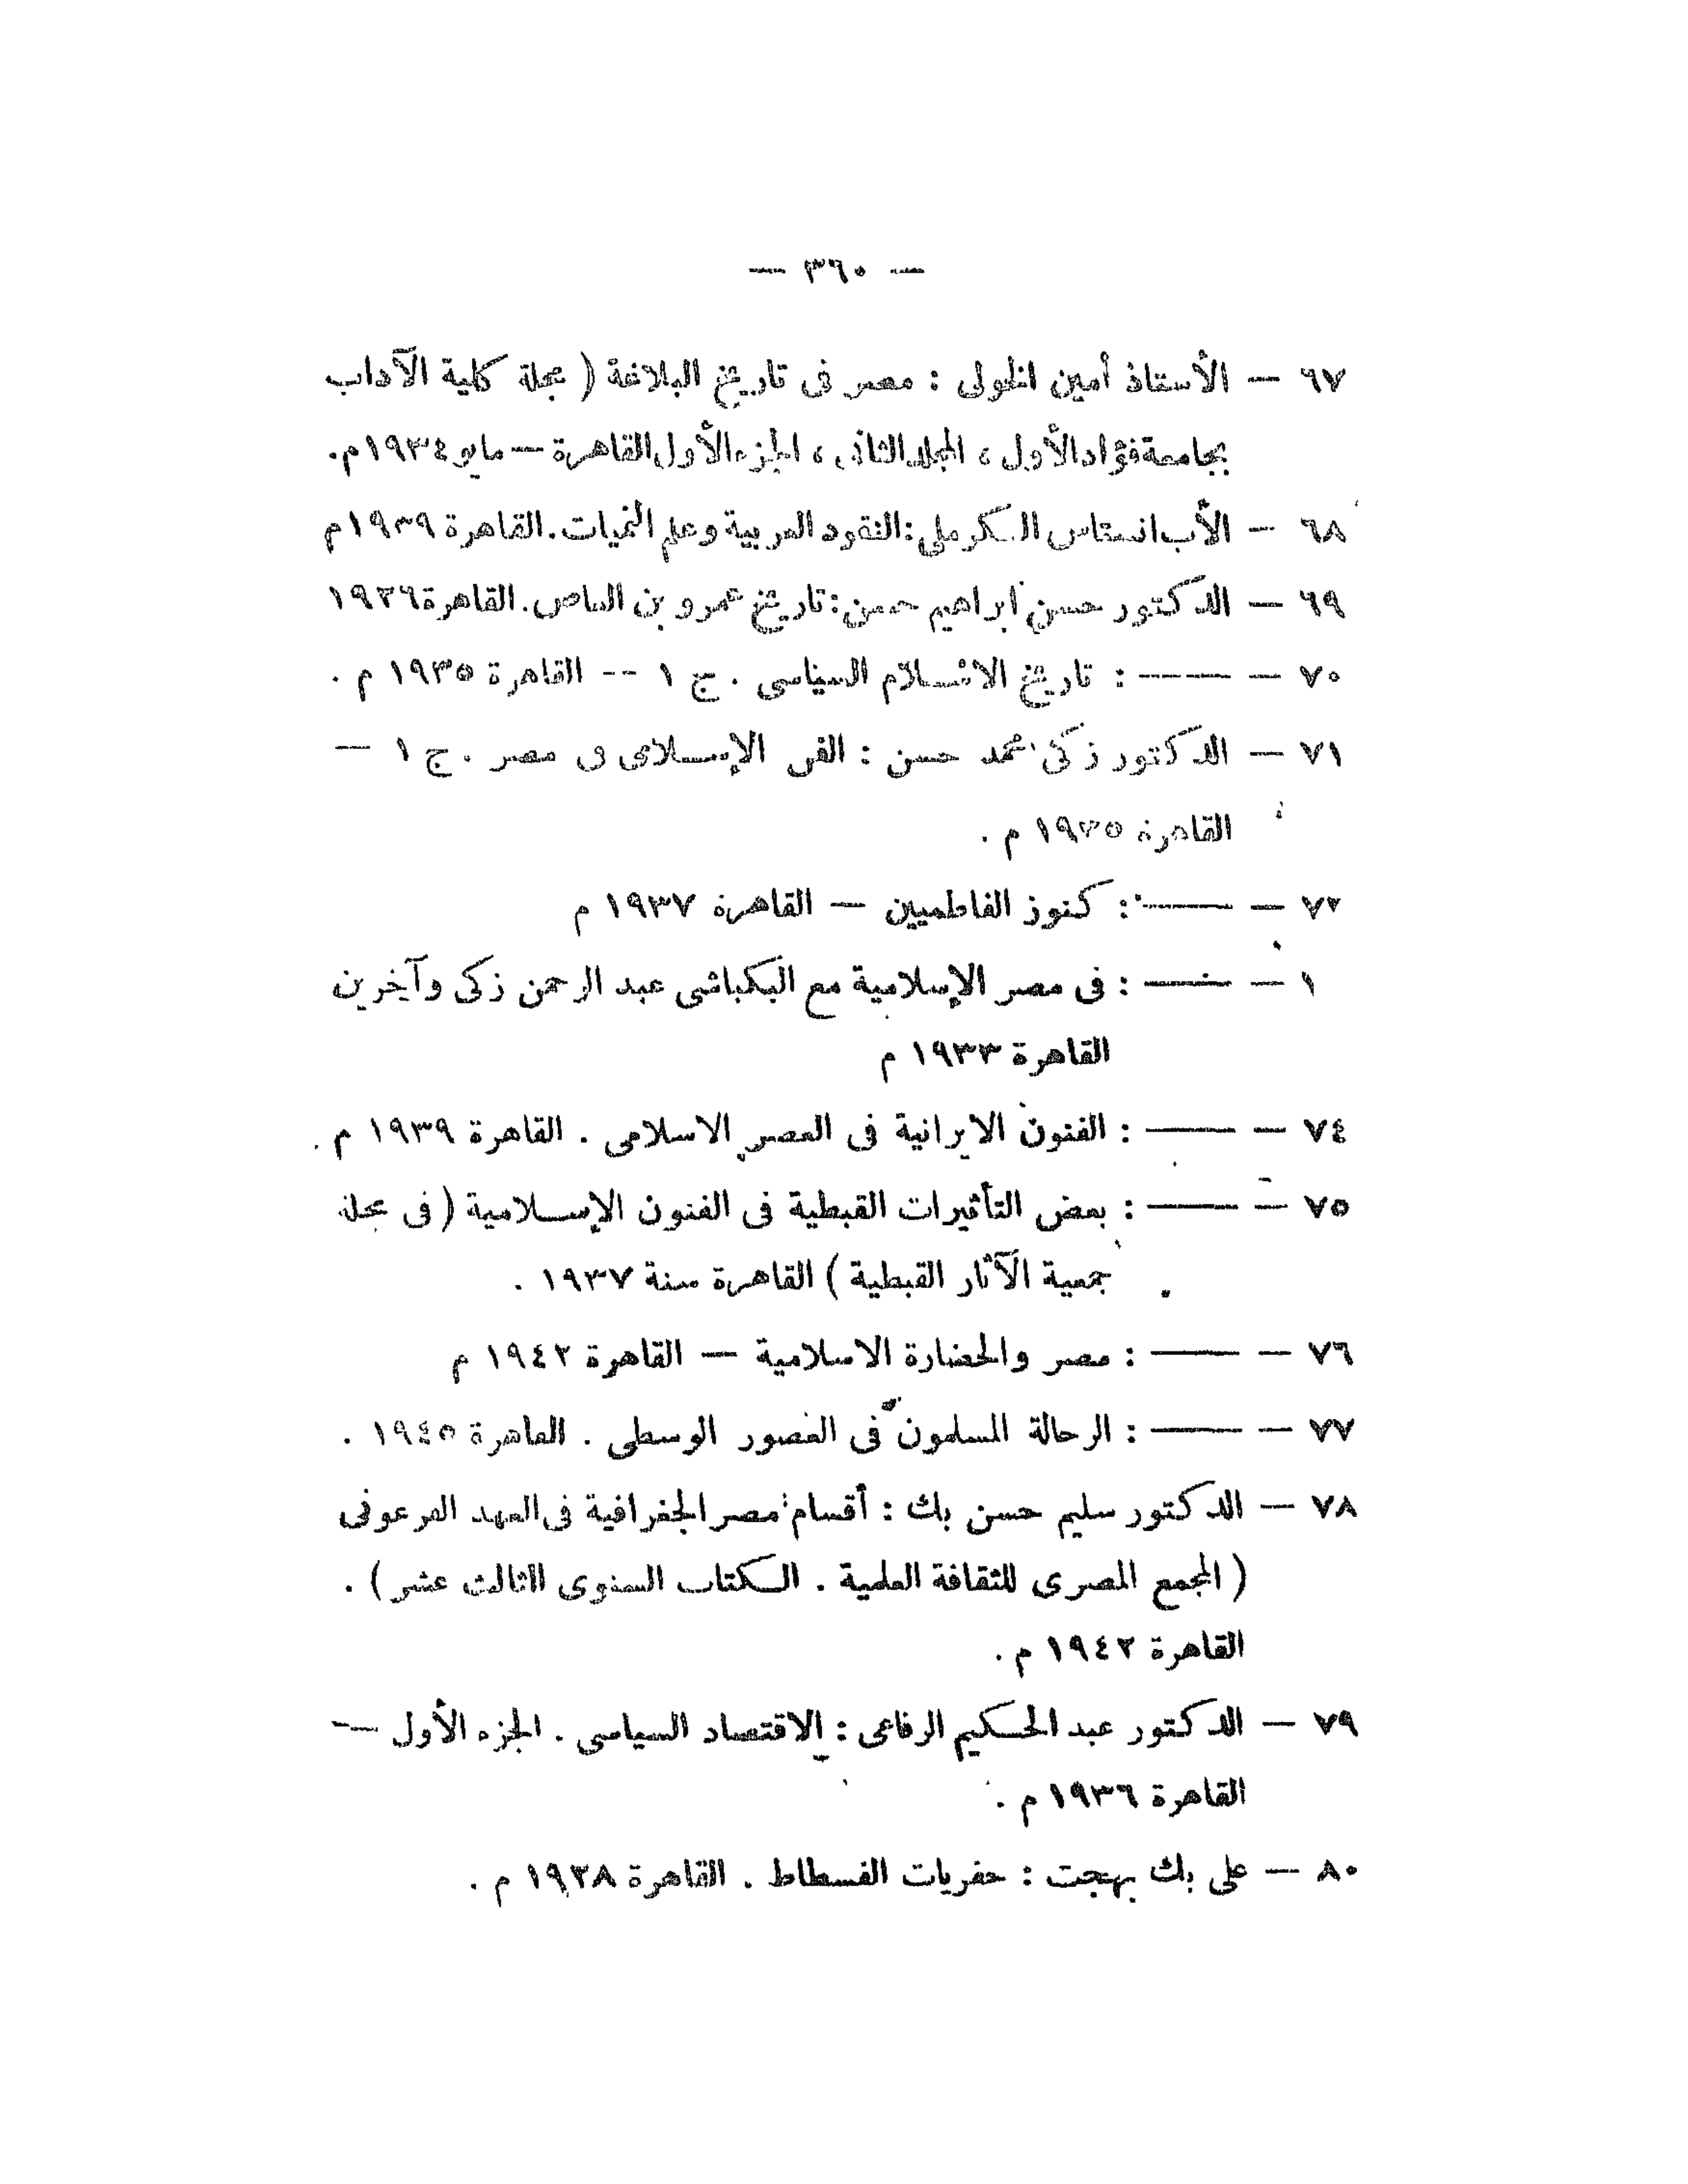 — ٣٦٠ —
٦٧ — الأستاذ أمين الخولى : مصر فى تاريخ البلاغة ( مجلة كلية الآداب
بجامعة فؤاد الأول ، المجلد الثانى ، الجزء الأول القاهرة — مايو ١٩٣٤ م .
٦٨ — الأب انستاس الكرملى : النقود العربية وعلم النميات . القاهرة ١٩٣٩ م
٦٩ — الدكتور حسن ابراهيم حسن : تاريخ عمرو بن العاص . القاهرة ١٩٢٦
٧٠ — —— : تاريخ الاسلام السياسى . ج ١ -- القاهرة ١٩٣٥ م .
٧١ — الدكتور زكى محمد حسن : الفن الإسلامى فى مصر . ج ١ —
القاهرة ١٩٣٥ م .
٧٢ — —— : كنوز الفاطميين — القاهرة ١٩٣٧ م
١ — —— : فى مصر الإسلامية مع البكباشى عبد الرحمن زكى وآخرين
القاهرة ١٩٣٣ م
٧٤ — —— : الفنون الايرانية فى العصر الاسلامى . القاهرة ١٩٣٩ م .
٧٥ — —— : بعض التأثيرات القبطية فى الفنون الإسلامية ( فى مجلة
جمعية الآثار القبطية ) القاهرة سنة ١٩٣٧ .
٧٦ — —— : مصر والحضارة الاسلامية — القاهرة ١٩٤٢ م
٧٧ — —— : الرحالة المسلمون فى العصور الوسطى . القاهرة ١٩٤٥ .
٧٨ — الدكتور سليم حسن بك : أقسام مصر الجغرافية فى العهد الفرعونى
( المجمع المصرى للثقافة العلمية . الكتاب السنوى الثالث عشر ) .
القاهرة ١٩٤٢ م .
٧٩ — الدكتور عبد الحكيم الرفاعى : الاقتصاد السياسى . الجزء الأول —
القاهرة ١٩٣٦ م .
٨٠ — على بك بهجت : حفريات الفسطاط . القاهرة ١٩٢٨ م .